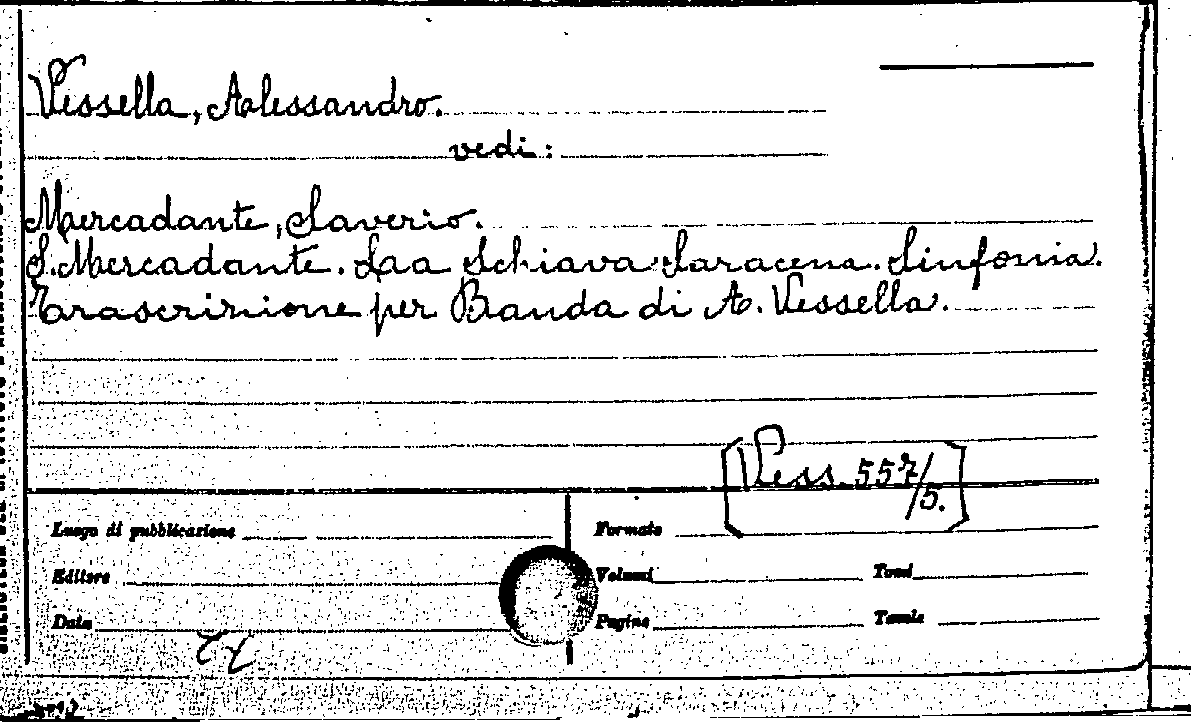 Vessella, Alessandro.
vedi:
Mercadante, Saverio.
S. Mercadante. Laa Schiava Saracena. Sinfonia.
Trascrizione per Banda di A. Vessella.
[Vess. 557/5.]
Luogo di pubblicazione
Formato
Editore
Volumi
Tomi
Data
Pagine
Tavole